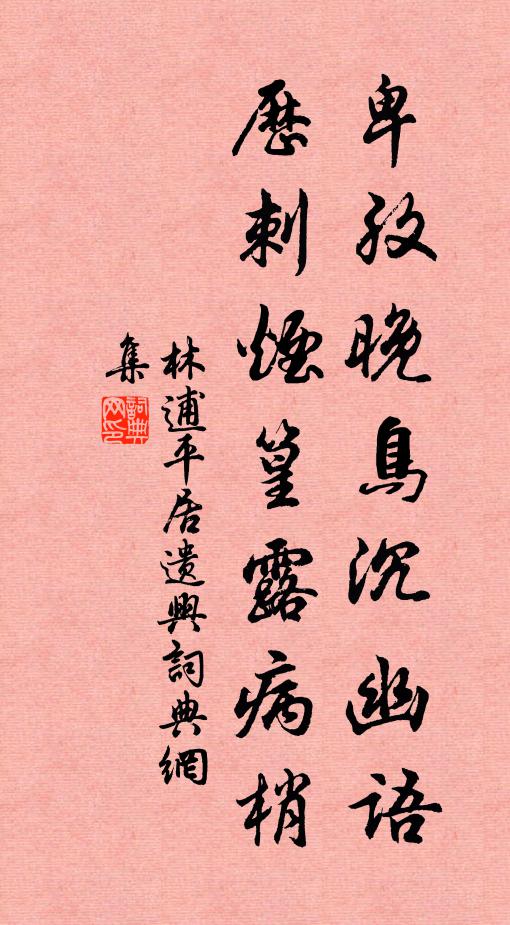 卑孜晚鳥沉幽語
歷刺煙篁露病梢
林逋平居遺興詞典網
集
詞典網印